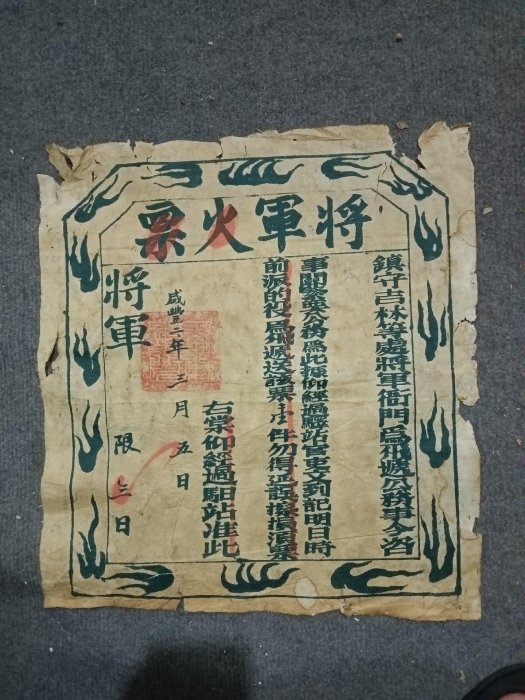 將軍火票
鎮守吉林等處將軍衙門為飛遞公務事今咨
事關緊要公務為此票仰經過驛站官吏文到記明日時
前派的役馬飛遞送該票文件勿得延誤擦損須票
右票仰經過馹站准此
咸豐二年三月五日
將軍
限三日